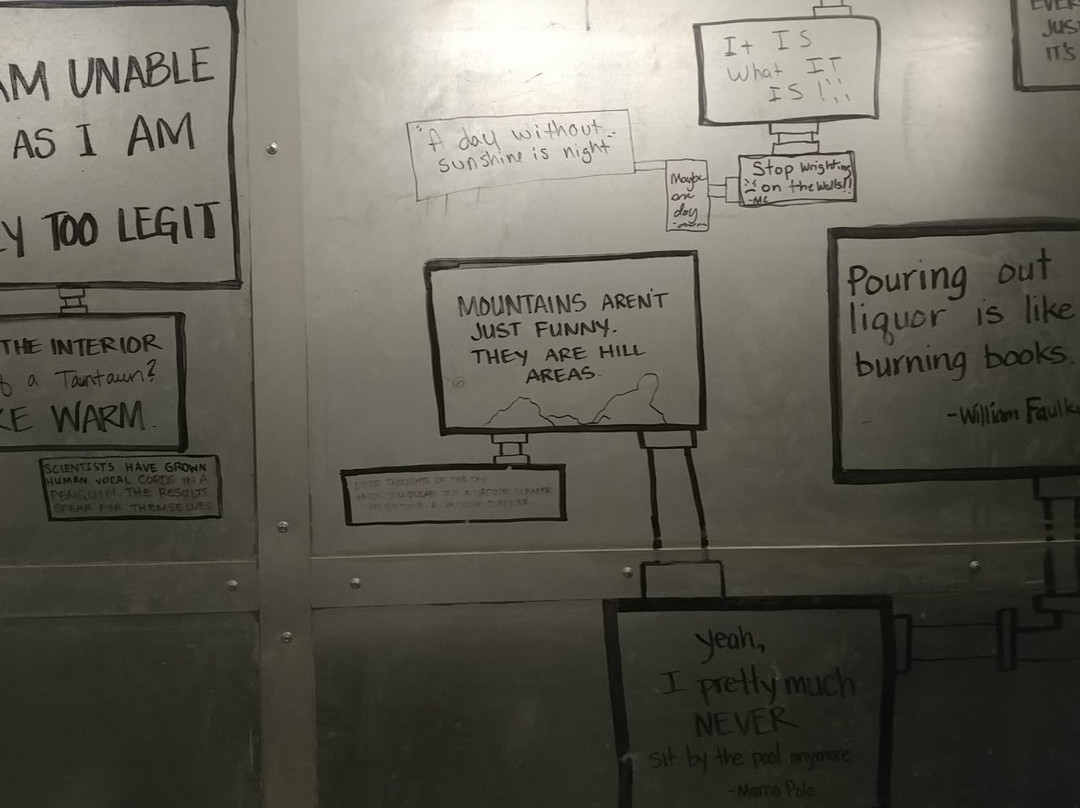 AM UNABLE
AS I AM
TOO LEGIT
THE INTERIOR
a Tauntaun?
WARM.
SCIENTISTS HAVE GROWN
HUMAN VOCAL CORDS IN A
PENGUIN. THE RESULTS
SPEAK FOR THEMSELVES
"A day without
sunshine is night"
It IS
What IT
IS !
Maybe
one
day
Stop Wrighting
on the Walls!!
-Me
MOUNTAINS AREN'T
JUST FUNNY.
THEY ARE HILL
AREAS.
DEEP THOUGHTS OF THE DAY
WHEN YOU CLEAN OUT A VACUUM CLEANER,
YOU BECOME A VACUUM CLEANER.
Pouring out
liquor is like
burning books.
-William
JUS
IT'S
yeah,
I pretty much
NEVER
sit by the pool anymore
-Marco Polo